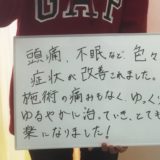 GAP
頭痛、不眠など色々
症状が改善されました。
施術の痛みもなく、ゆっく
ゆるやかに治っていき、とても
楽になりました！